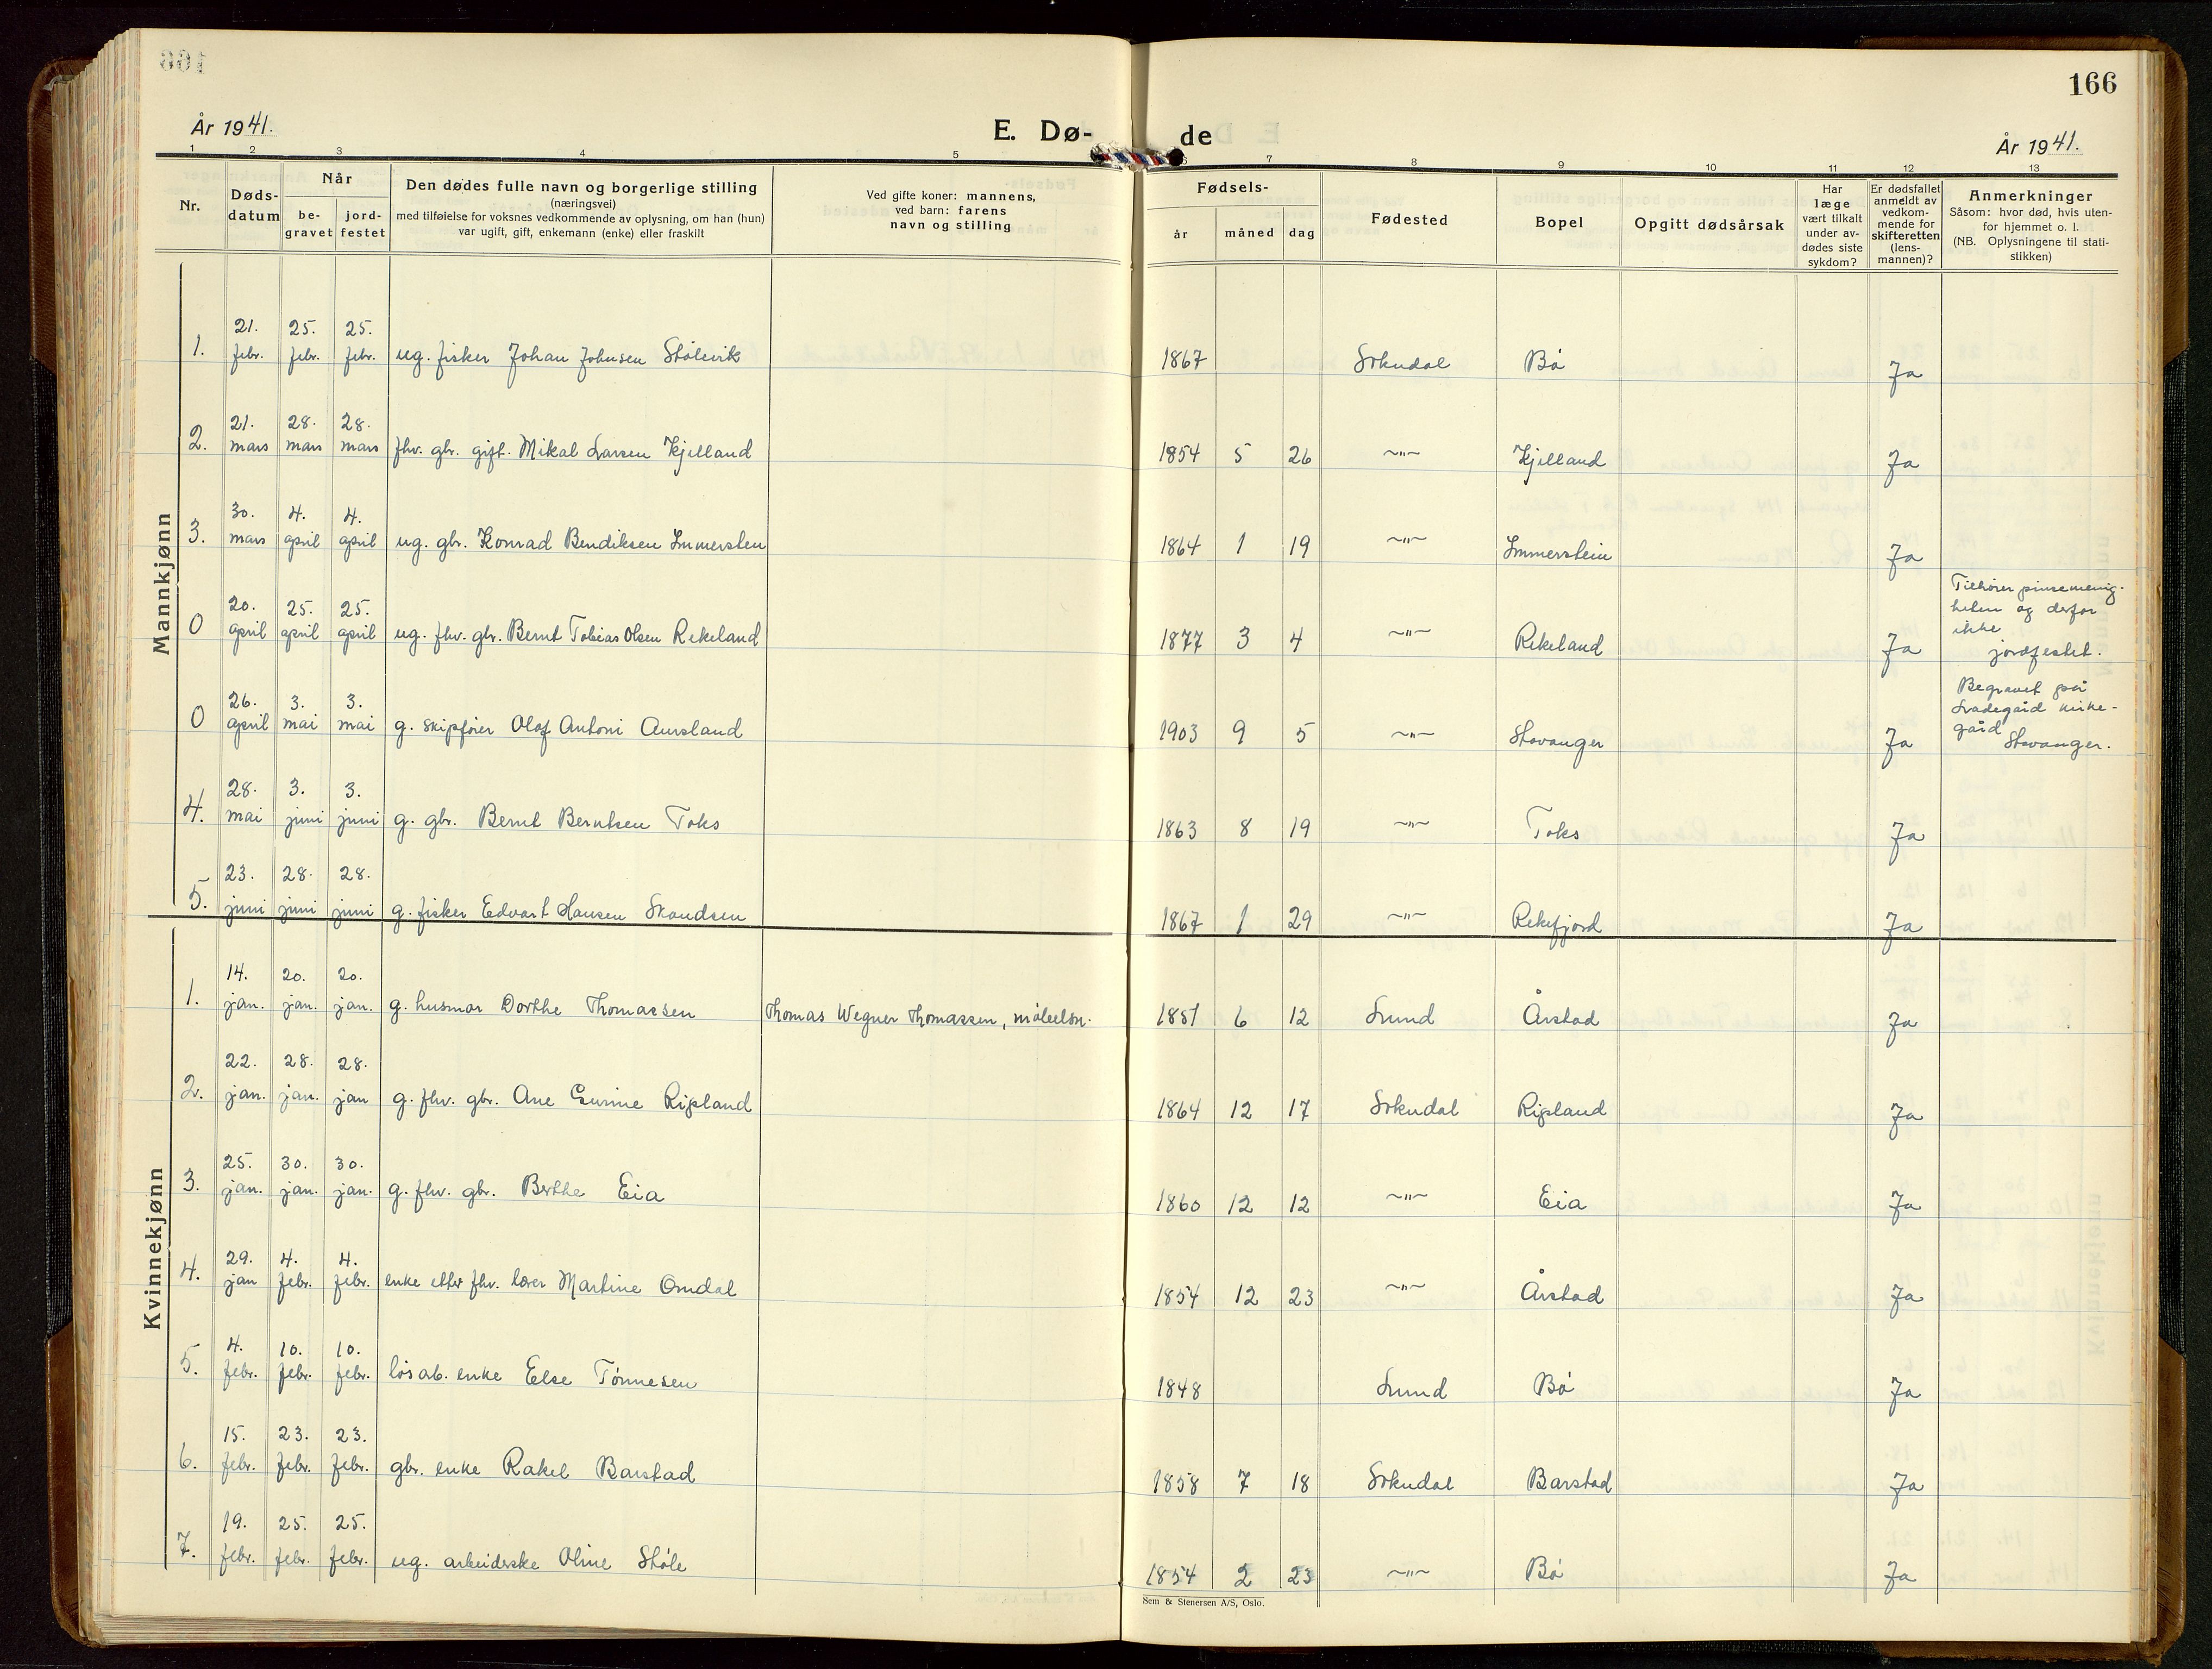 166
År 1941.
E. Dø-
de
År 1941.
1 2 3 4 5 6 7 8 9 10 11 12 13
Nr.
Døds-
datum
Når
be-
gravet
jord-
festet
Den dødes fulle navn og borgerlige stilling
(næringsvei)
med tilføielse for voksnes vedkommende av oplysning, om han (hun)
var ugift, gift, enkemann (enke) eller fraskilt
Ved gifte koner: mannens,
ved barn: farens
navn og stilling
Fødsels-
år måned dag
Fødested
Bopel
Opgitt dødsårsak
Har
læge
vært tilkalt
under av-
dødes siste
sykdom?
Er dødsfallet
anmeldt av
vedkom-
mende for
skifteretten
(lens-
mannen)?
Anmerkninger
Såsom: hvor død, hvis uten-
for hjemmet o. l.
(NB. Oplysningene til stati-
stikken)
Mannkjønn
1. 21. febr. 25. febr. 25. febr. ug. fisker Johan Johnsen Stølevik 1867 Sokndal Bø Ja
2. 21. mars 28. mars 28. mars fhv. gbr. gift. Mikal Larsen Kjelland 1854 5 26 ~"~ Kjelland Ja
3. 30. mars 4. april 4. april ug. gbr. Konrad Bendiksen Immerstein 1864 1 19 ~"~ Immerstein Ja
0 20. april 25. april 25. april ug. fhv. gbr. Bernt Tobias Olsen Rekeland 1877 3 4 ~"~ Rekeland Ja
Tilhører pinsemenig-
heten og derfor
ikke
jordfestet.
0 26. april 3. mai 3. mai g. skipfører Olaf Antoni Aursland 1903 9 5 ~"~ Stavanger Ja
Begravet på
kirke-
gård
Stavanger.
4. 28. mai 3. juni 3. juni g. gbr. Bernt Berntsen Toks 1863 8 19 ~"~ Toks Ja
5. 23. juni 28. juni 28. juni g. fisker Edvart Hansen Skandsen 1867 1 29 ~"~ Rekefjord Ja
Kvinnekjønn
1. 14. jan. 20. jan. 20. jan. g. husmor Dorthe Thomassen Thomas Wegner Thomassen, 1857 6 12 Lund Årstad Ja
2. 22. jan. 28. jan. 28. jan g. fhv. gbr. Ane Gurine Ripland 1864 12 17 Sokndal Ripland Ja
3. 25. jan. 30. jan. 30. jan. g. fhv. gbr. Berthe Eia 1860 12 12 ~"~ Eia Ja
4. 29. jan 4. febr. 4. febr. enke etter fhv. lærer Martine Omdal 1854 12 23 ~"~ Årstad Ja
5. 4. febr. 10. febr. 10. febr. løsarb. enke Else Tønnesen 1848 Lund Bø Ja
6. 15. febr. 23. febr. 23. febr. gbr. enke Rakel Barstad 1858 7 18 Sokndal Barstad Ja
7. 19. febr. 25. febr. 25. febr. ug. arbeiderske Oline Støle 1854 2 23 ~"~ Bø Ja
Sem & Stenersen A/S, Oslo.